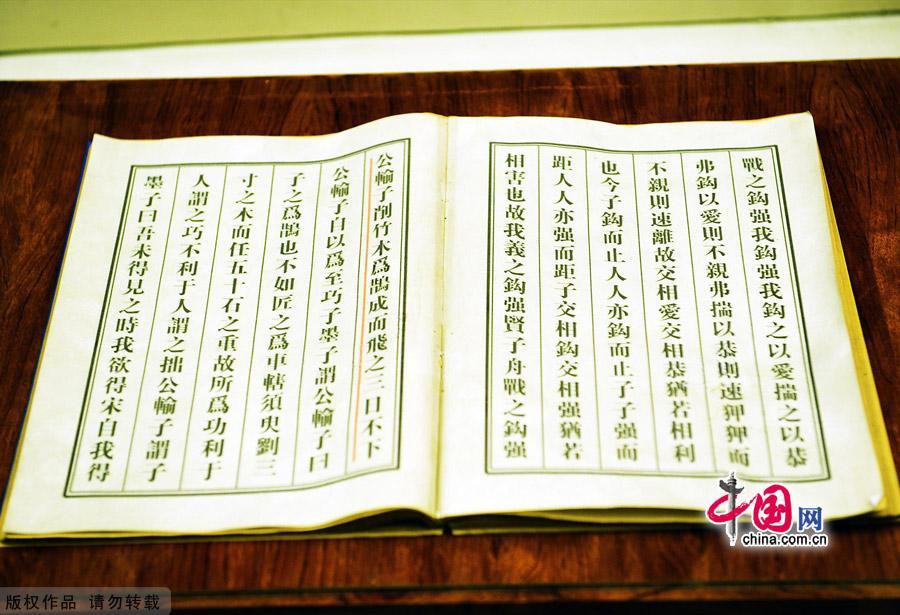 戰之鈎强我鈎强我鈎之以愛揣之以恭
弗鈎以愛則不親弗揣以恭則速狎狎而
不親則速離故交相愛交相恭猶若相利
也今子鈎而止人人亦鈎而止子子强而
距人人亦强而距子交相鈎交相强猶若
相害也故我義之鈎强賢子舟戰之鈎强
公輸子削竹木爲䧿成而飛之三日不下
公輸子自以爲至巧子墨子謂公輸子曰
子之爲䧿也不如匠之爲車轄須臾劉三
寸之木而任五十石之重故所爲功利于
人謂之巧不利于人謂之拙公輸子謂子
墨子曰吾未得見之時我欲得宋自我得
中国网
china.com.cn
版权作品 请勿转载